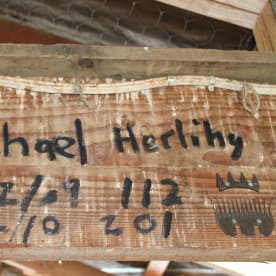 hael Herlihy
2/09 112
2/10 201